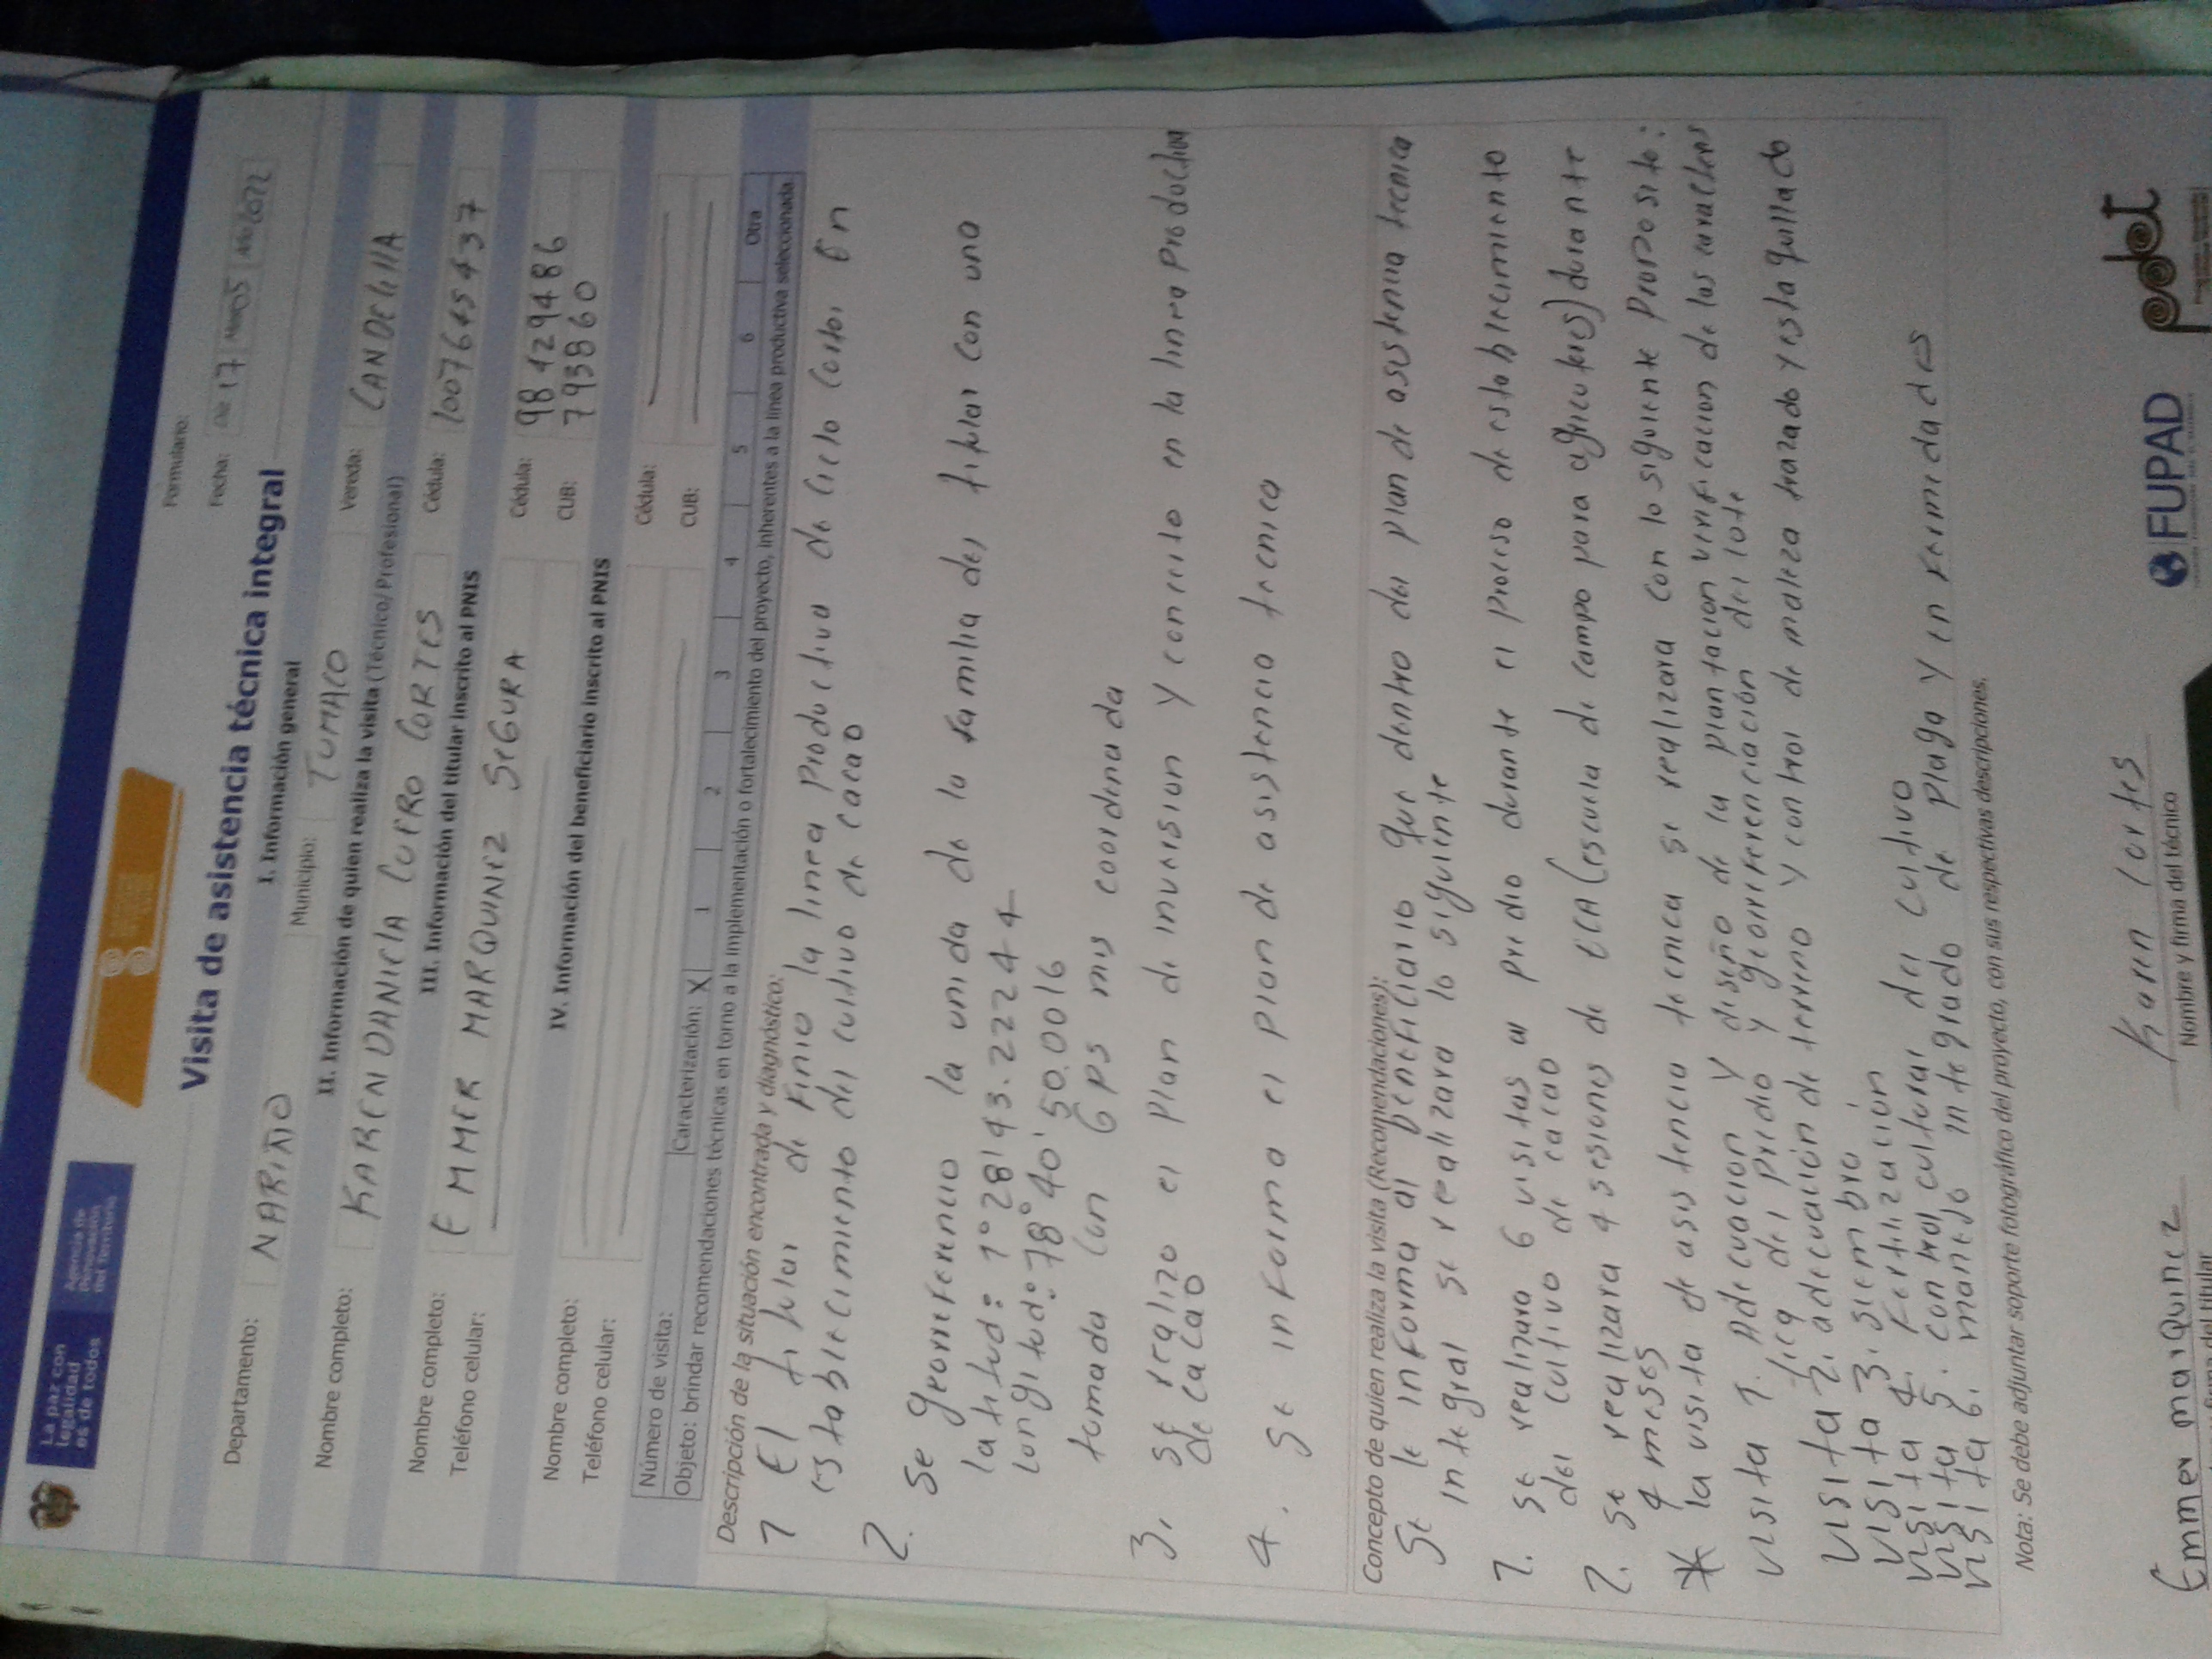 La paz con
legalidad
es de todos
Agencia de
Renovación
del Territorio
Formulario:
Fecha: Día 17 Mes 05 Año 2022
Visita de asistencia técnica integral
I. Información general
Departamento: NARIÑO Municipio: TUMACO Vereda: CANDELILLA
II. Información de quien realiza la visita (Técnico/Profesional)
Nombre completo: KAREN DANIELA CUERO CORTES Cédula: 1007645437
III. Información del titular inscrito al PNIS
Nombre completo: EMMER MARQUINEZ SEGURA Cédula: 98429486
Teléfono celular: CUB: 7938860
IV. Información del beneficiario inscrito al PNIS
Nombre completo: Cédula:
Teléfono celular: CUB:
Número de visita: Caracterización: X 1 2 3 4 5 6 Otra
Objeto: brindar recomendaciones técnicas en torno a la implementación o fortalecimiento del proyecto, inherentes a la línea productiva seleccionada
Descripción de la situación encontrada y diagnóstico:
1 El titular de Finio la linea productiva de ciclo cortos En
establecimiento del cultivo de cacao
2. Se georreferencio la unida de la familia del titular con una
latitud: 1° 28' 43.22244
longitud: 78° 40' 50.0016
tomada con GPS mis coordenada
3. se realizo el plan de inversion y concreto en la linea productiva
de cacao
4. Se informa el plan de asistencia tecnica
Concepto de quien realiza la visita (Recomendaciones):
Se le informa al beneficiario que dentro del plan de asistencia tecnica
integral se realizara lo siguiente
1. se realizara 6 visitas al predio durante el proceso de establecimiento
del cultivo de cacao
2. se realizara 4 sesiones de ECA (escuela de campo para agricultores) durante
4 meses
* la visita de asistencia tecnica se realizara con lo siguiente proposito:
visita 1. Adecuacion y diseño de la plantacion verificacion de las caracteres
tica del predio y georreferenciación del lote
visita 2. adecuación de terreno y control de maleza trazado y estaquillado
visita 3. siembra
visita 4. Fertilización
visita 5. control cultural del cultivo
visita 6. manejo integrado de plaga y enfermedades
Nota: Se debe adjuntar soporte fotográfico del proyecto, con sus respectivas descripciones.
Emmer marquinez
Karen Cortes
Nombre y firma del técnico
FUPAD
pdet